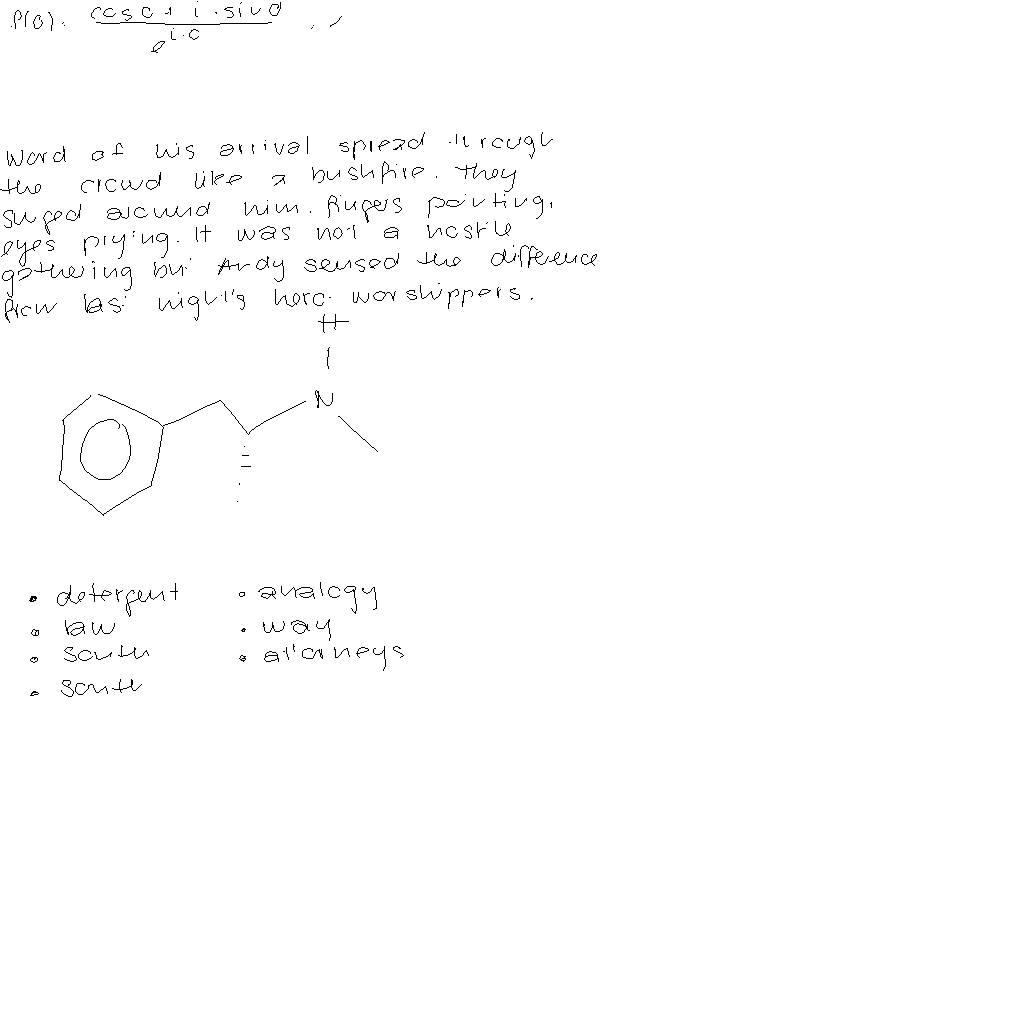 f(θ) = (cos θ + i · sin θ) / e^(i·θ)
Word of his arrival spread through
the crowd like a bushfire. They
surged around him. Fingers pointing,
eyes prying. It was not a hostile
gathering but Andy sensed the difference
from last night's hero-worshippers.
H
N
• detergent • analogy
• law • way
• south • attorneys
• south